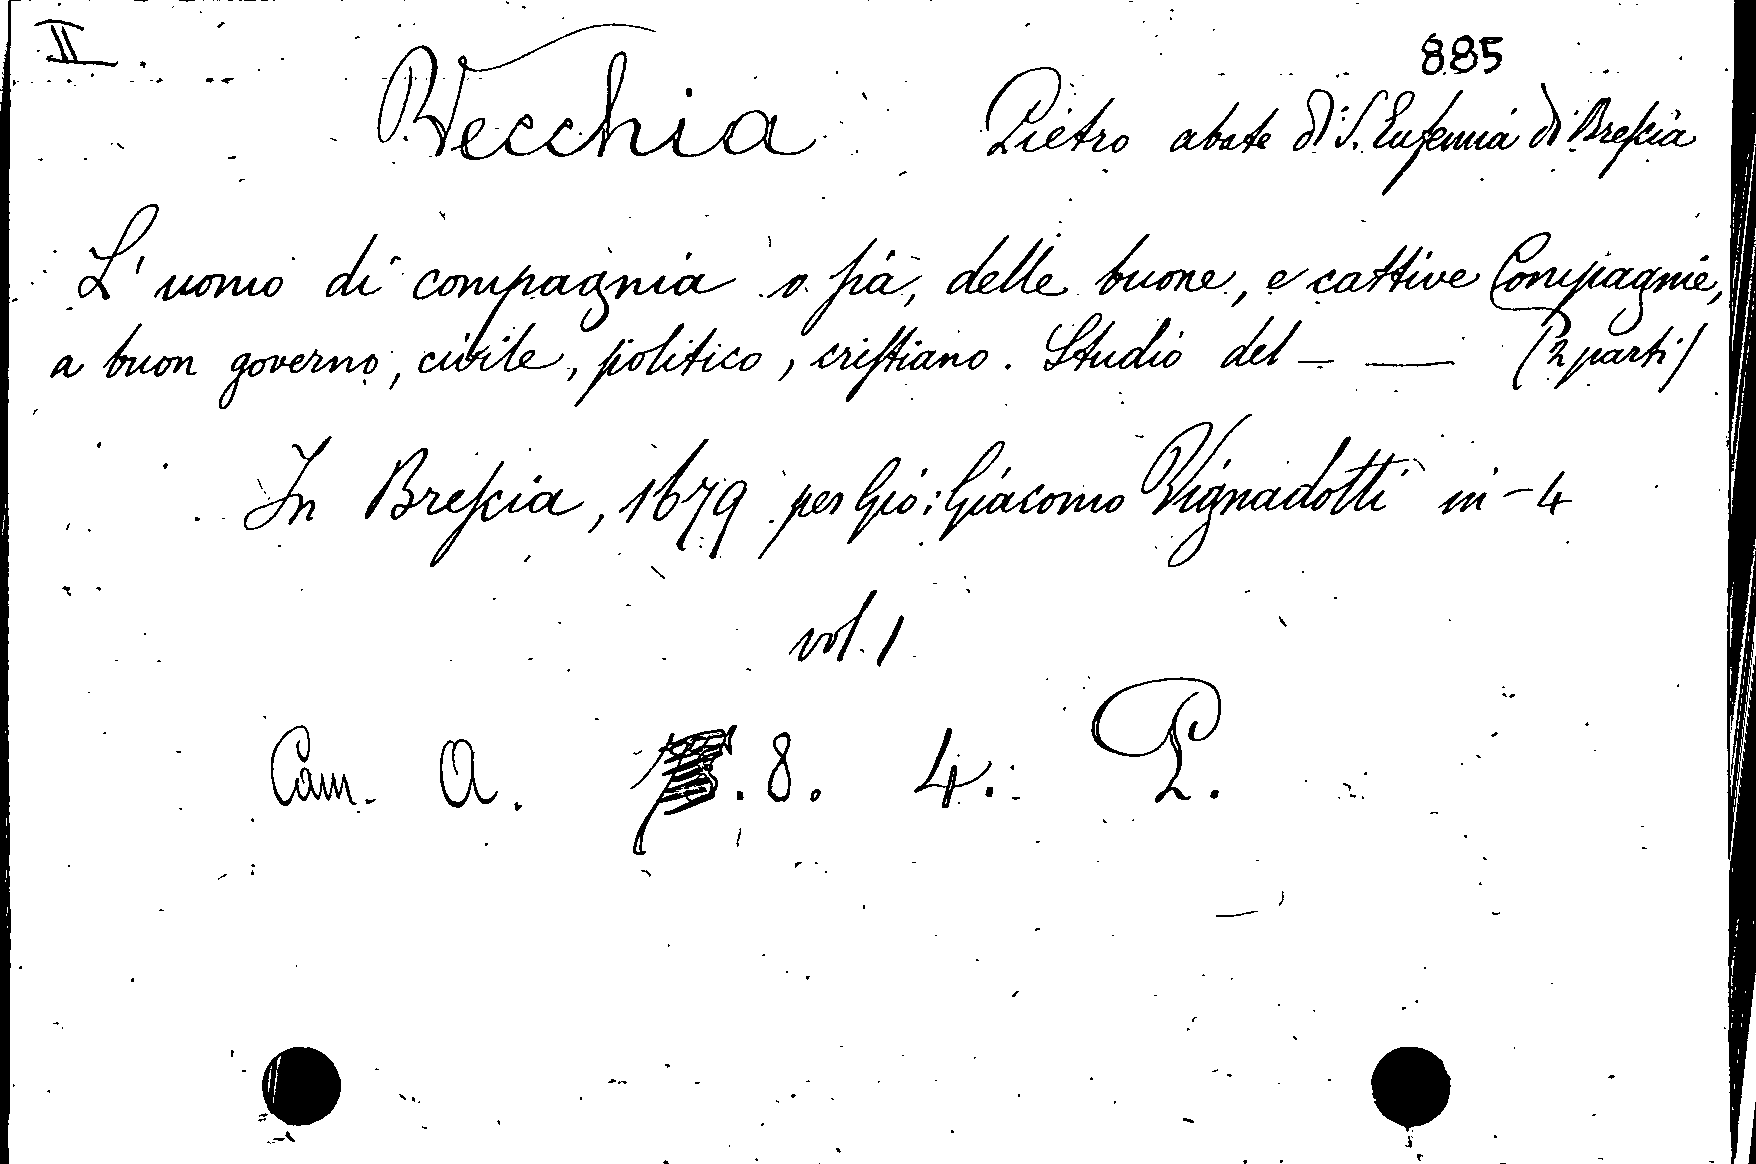 II.
885
Vecchia Pietro abate di S. Eufemia di Breſcia
L'uomo di compagnia o ſia, delle buone, e cattive Compagnie,
a buon governo, civile, politico, criſtiano. Studio del - — (2 parti)
In Breſcia, 1679 per Gio: Giacomo Vignadotti in-4
vol. 1
Cam. A. .8. 4. P.